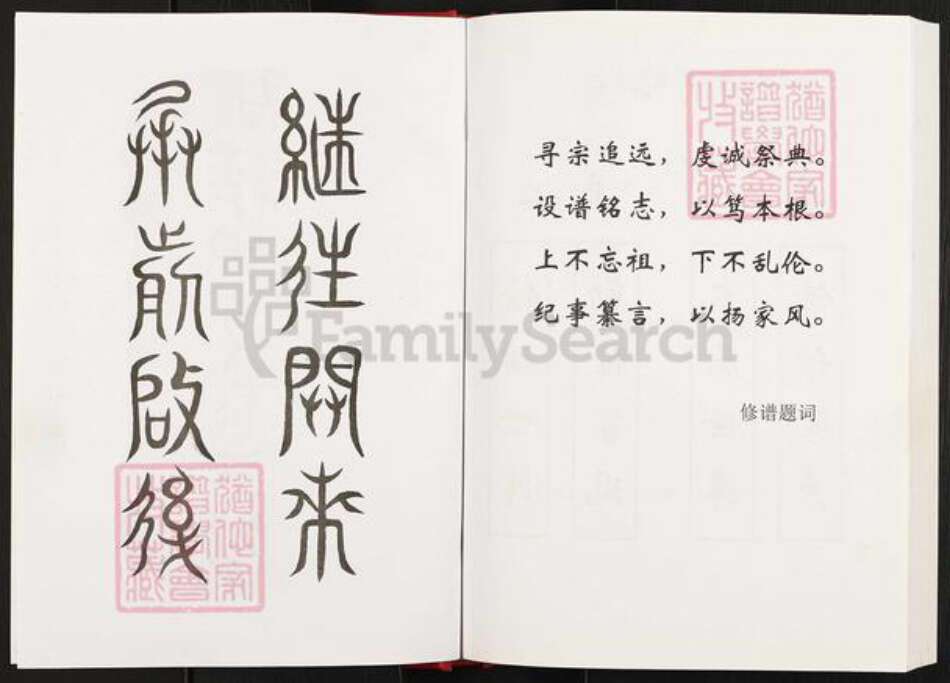 继往開来
承前啟後
寻宗追远，虔诚祭典。
设谱铭志，以笃本根。
上不忘祖，下不乱伦。
纪事纂言，以扬家风。
修谱题词
FamilySearch